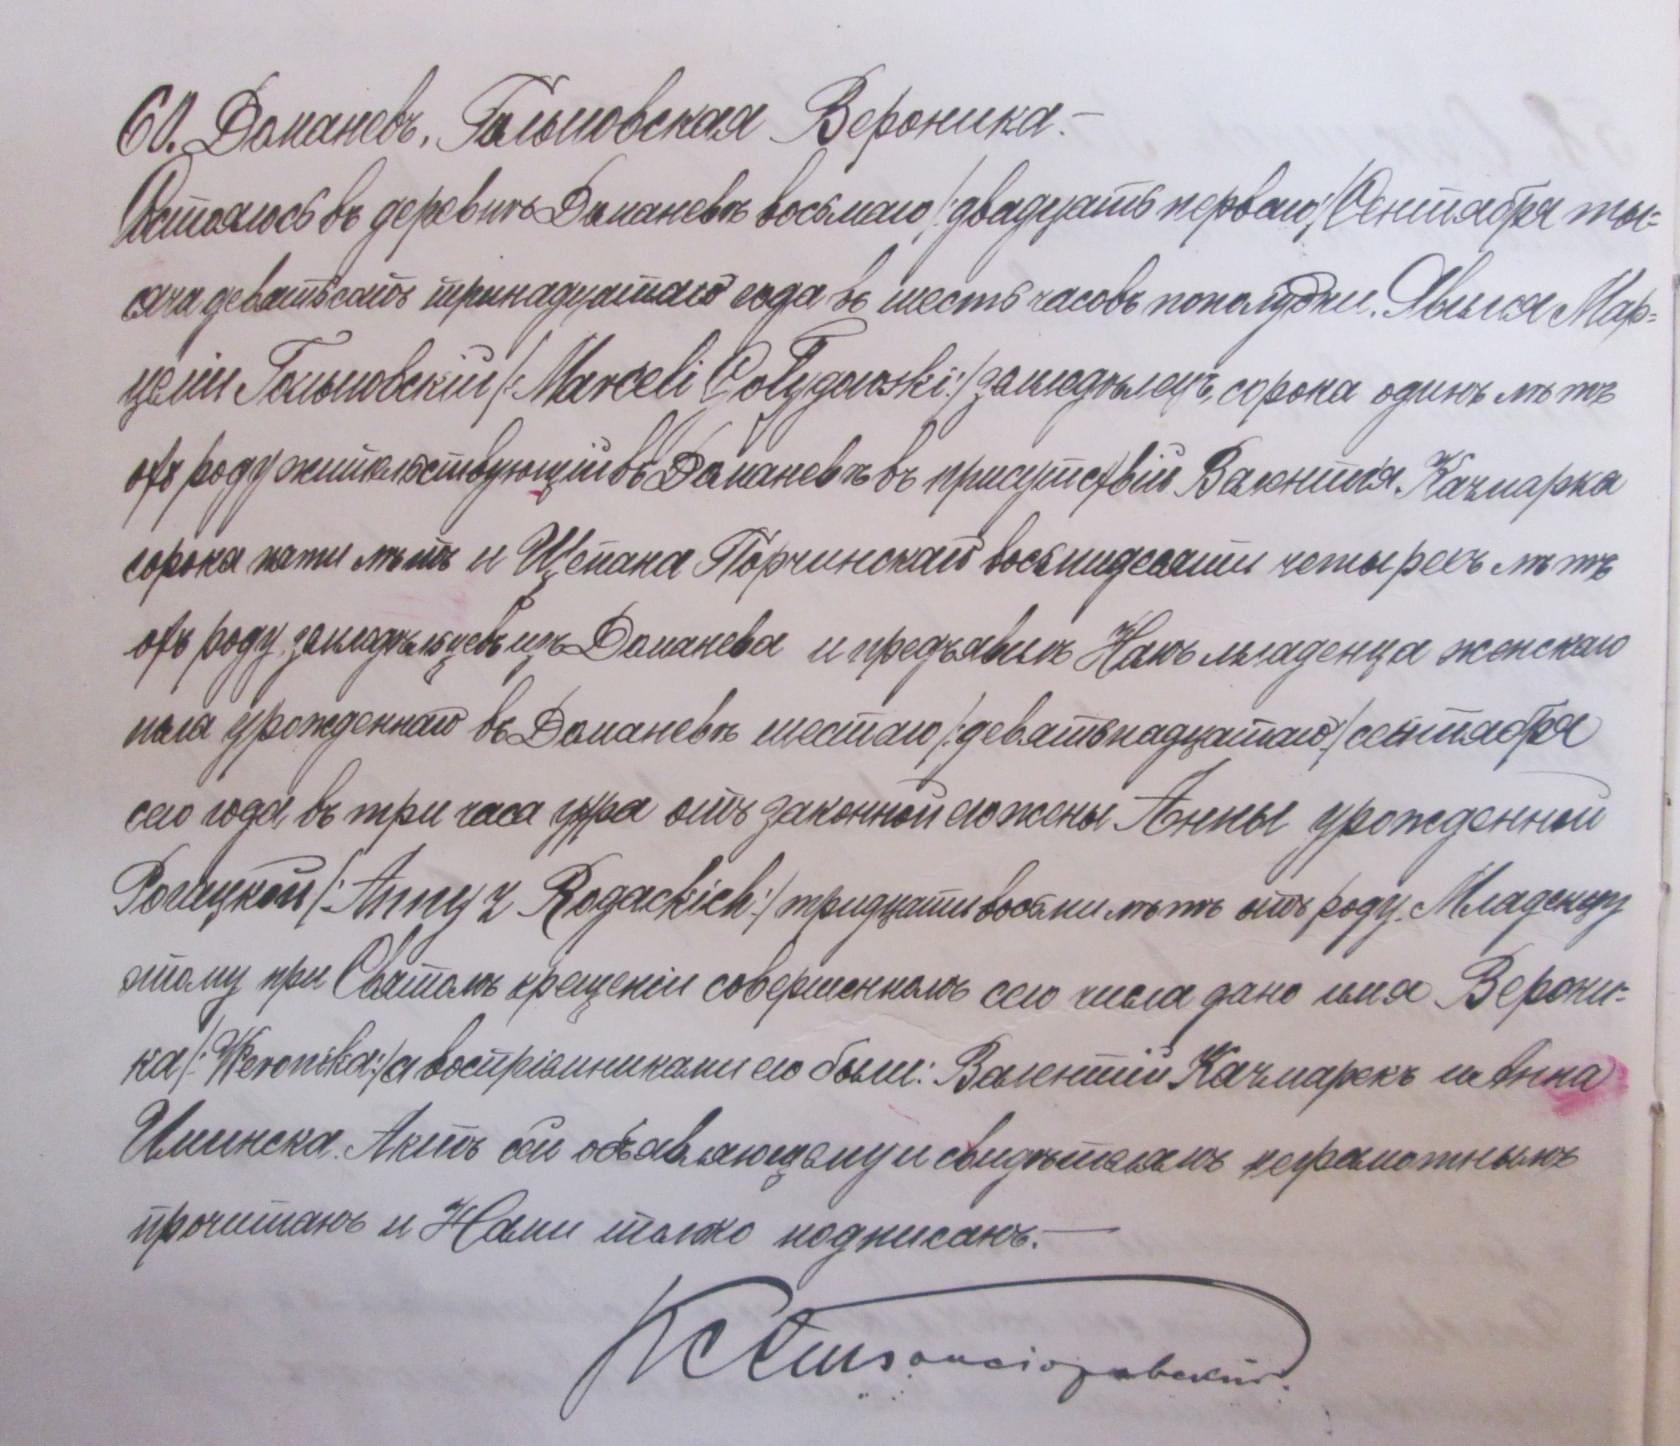 60. Доманевъ. Голыговская Вероника.—
Состоялось въ деревнѣ Доманевѣ восьмаго /:двадцать перваго:/ Сентября ты=
сяча девятьсотъ тринадцатаго года въ шесть часовъ пополудни. Явился Мар=
целій Голыговскій /:Marceli Gołygowski:/ земледѣлецъ, сорока одинъ лѣтъ
отъ роду жительствующій въ Доманевѣ въ присутствіи Валентія Качмарка
сорока пяти лѣтъ и Щепана Порчинскаго восьмидесяти четырехъ лѣтъ
отъ роду, земледѣльцевъ изъ Доманева и предъявилъ Намъ младенца женскаго
пола урожденнаго въ Доманевѣ шестаго /:девятьнадцатаго:/ сентября
сего года, въ три часа утра отъ законной его жены Анны урожденной
Рогацкой /:Anny z Rogackich:/ тридцати восьми лѣтъ отъ роду. Младенцу
этому при Святомъ крещеніи совершенномъ сего числа дано имя Верони=
ка /:Weronika:/ а воспріемниками его были: Валентій Качмарекъ и Анна
Илинска. Актъ сей объявляющему и свидѣтелямъ неграмотнымъ
прочитанъ и Нами только подписанъ.—